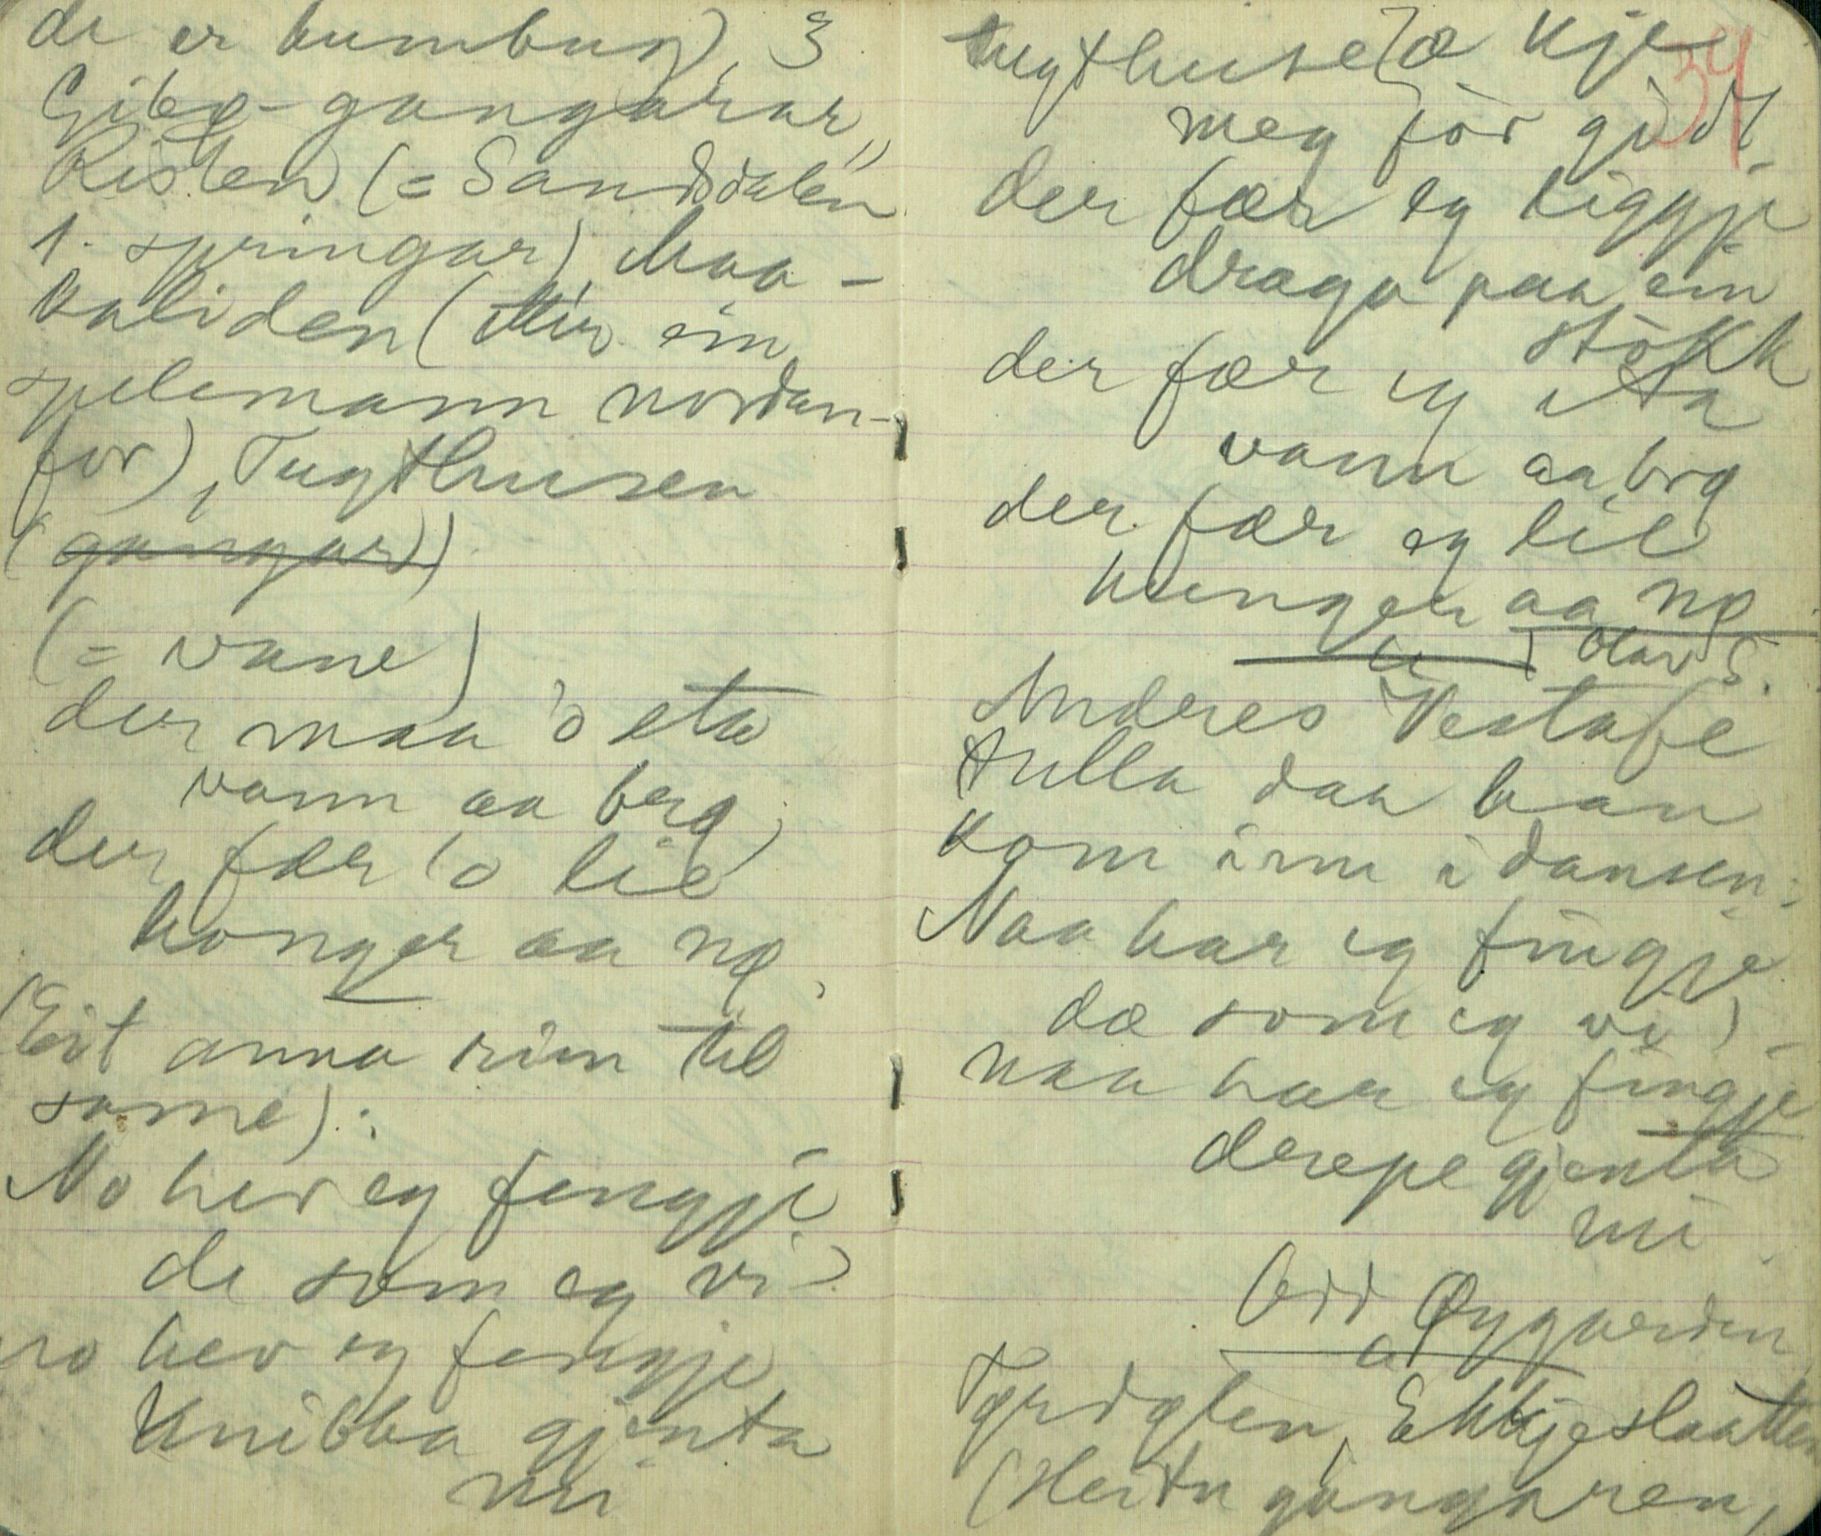 de er humbug), 3
Gibø-gangarar,
Risten (= Sandsdalen
1. springar), Maa-
validen (
ein
spelemann nordan-
for), Tugthusen
(gangar)
(= vane)
der maa 'o eta
vann aa brø,
der fær 'o lie
honger aa nø,
(Eit anna rim til
same):
No hev eg fengje
de som eg vi?
no hev eg fengje
knibba gjenta
mi
tugthuse æ kje
meg for godt,
34
der fær eg liggje
draga paa ein
stokk
der fær eg eta
vann aa brø
der fær eg lie
hunger aa nø
Olav S.
Andres Vestafe
tulla daa han
kom inn i dansen:
Naa har eg fingje
dæ som eg vi,
naa har eg fingje
drepe gjenta
mi.
Odd Øygarden
Ekkjeslaatten
(Heitn gangaren,